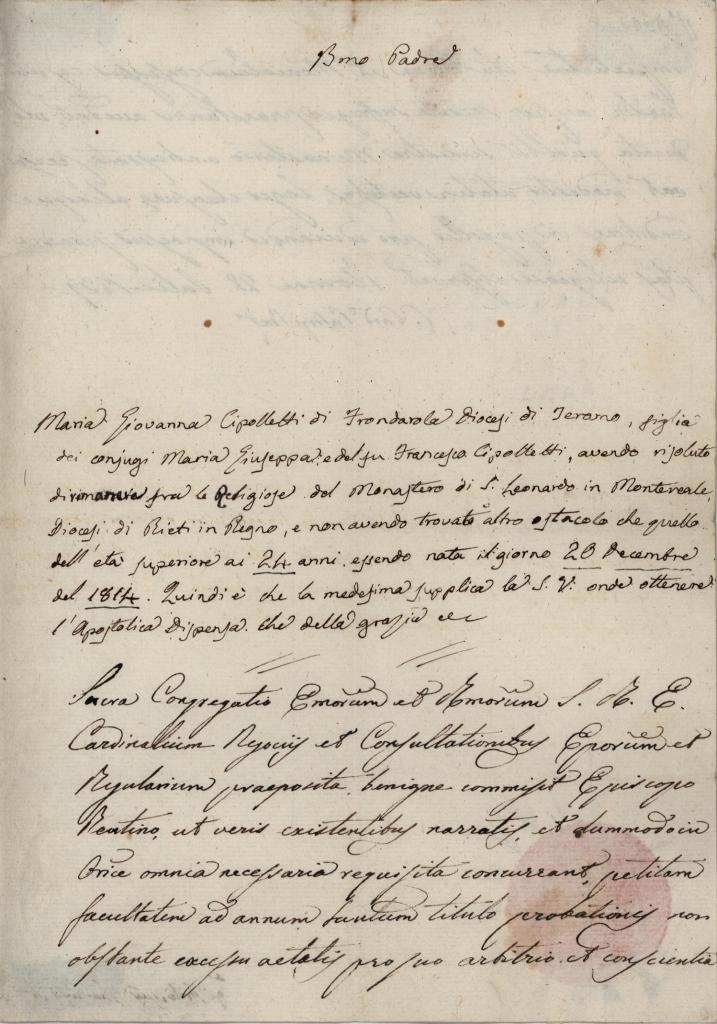 Bmo Padre
Maria Giovanna Cipolletti di Frondarola Diocesi di Teramo, figlia
dei conjugi Maria Giuseppa, e del fu Francesco Cipolletti, avendo risoluto
di rimanere fra le Religiose del Monastero di S. Leonardo in Montereale,
Diocesi di Rieti in Regno, e non avendo trovato altro ostacolo che quello
dell'età superiore ai 24 anni, essendo nata il giorno 20 Decembre
del 1814. Quindi è che la medesima supplica la S. V. onde ottenere
l'Apostolica Dispensa. Che della grazia ec
Sacra Congregatio Emorum et Rmorum S. R. E.
Cardinalium Negociis et Consultationibus Eporum et
Regularium praeposita, benigne commisit Episcopo
Reatino, ut veris existentibus narratis, et dummodo in
Orice omnia necessaria requisita concurrant, petitam
facultatem ad annum tantum titulo probationis non
obstante excessu aetatis pro suo arbitrio et conscientia